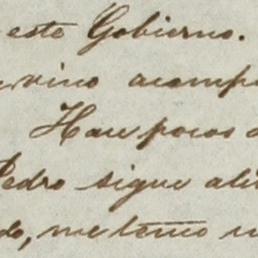 este Gobierno.
vino acomp
Hace pocos
Pedro sigue ali
do, me temo